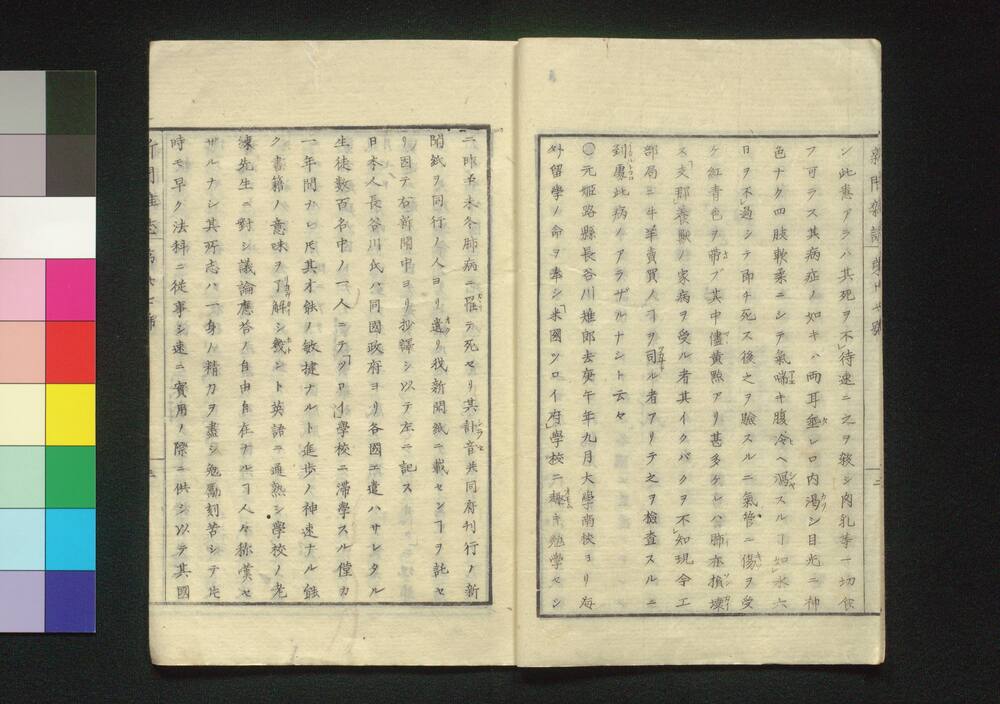 新聞雜誌 第廿七號 二
ン此患アラハ其死ヲ不待速ニ之ヲ殺シ肉乳等一切食
フ可ラス其病症ノ如キハ両耳埀レ口内渇シ目光ニ神
色ナク四肢軟柔ニシテ氣喘キ腹冷ヘ瀉スルヿ如水六
日ヲ不過シテ即チ死ス後之ヲ驗スルニ氣管ニ傷ヲ受
ケ紅青色ヲ帶ブ其中儘黄點アリ甚多ケレハ肺亦損壞
ス支那養獸ノ家病ヲ受ル者其イクバクヲ不知現今工
部局ニ牛羊賣買ノヿヲ司ル者アリテ之ヲ檢査スルニ
到處此病ノアラザルナシト云々
〇元姫路縣長谷川雉郎去庚午年九月大學南校ヨリ海
外留學ノ命ヲ奉シ米國ツロイ府學校ニ趣キ勉学セシ
ニ昨辛未冬肺病ニ罹テ死セリ其訃音共同府刊行ノ新
聞紙ヲ同行ノ人ヨリ遺リ我新聞紙ニ載センヿヲ託セ
リ因テ右新聞中ヨリ抄譯シ以テ左ニ記ス
日本人長谷川氏ハ同國政府ヨリ各國エ遣ハサレタル
生徒数百名中ノ一人ニテツロイ學校ニ滞學スル僅カ
一年間ナレ𪜈其才能ノ敏捷ナルト進歩ノ神速ナル能
ク書籍ノ意味ヲ了解シ幾ント英語ニ通熟シ學校ノ老
練先生ニ對シ議論應答ノ自由自在ナルヿ人々称嘆セ
ザルナシ其所志ハ一身ノ精力ヲ盡シ勉勵刻苦シテ片
時モ早ク法科ニ從事シ速ニ實用ノ際ニ供シ以テ其國
新聞雜誌 第廿七號